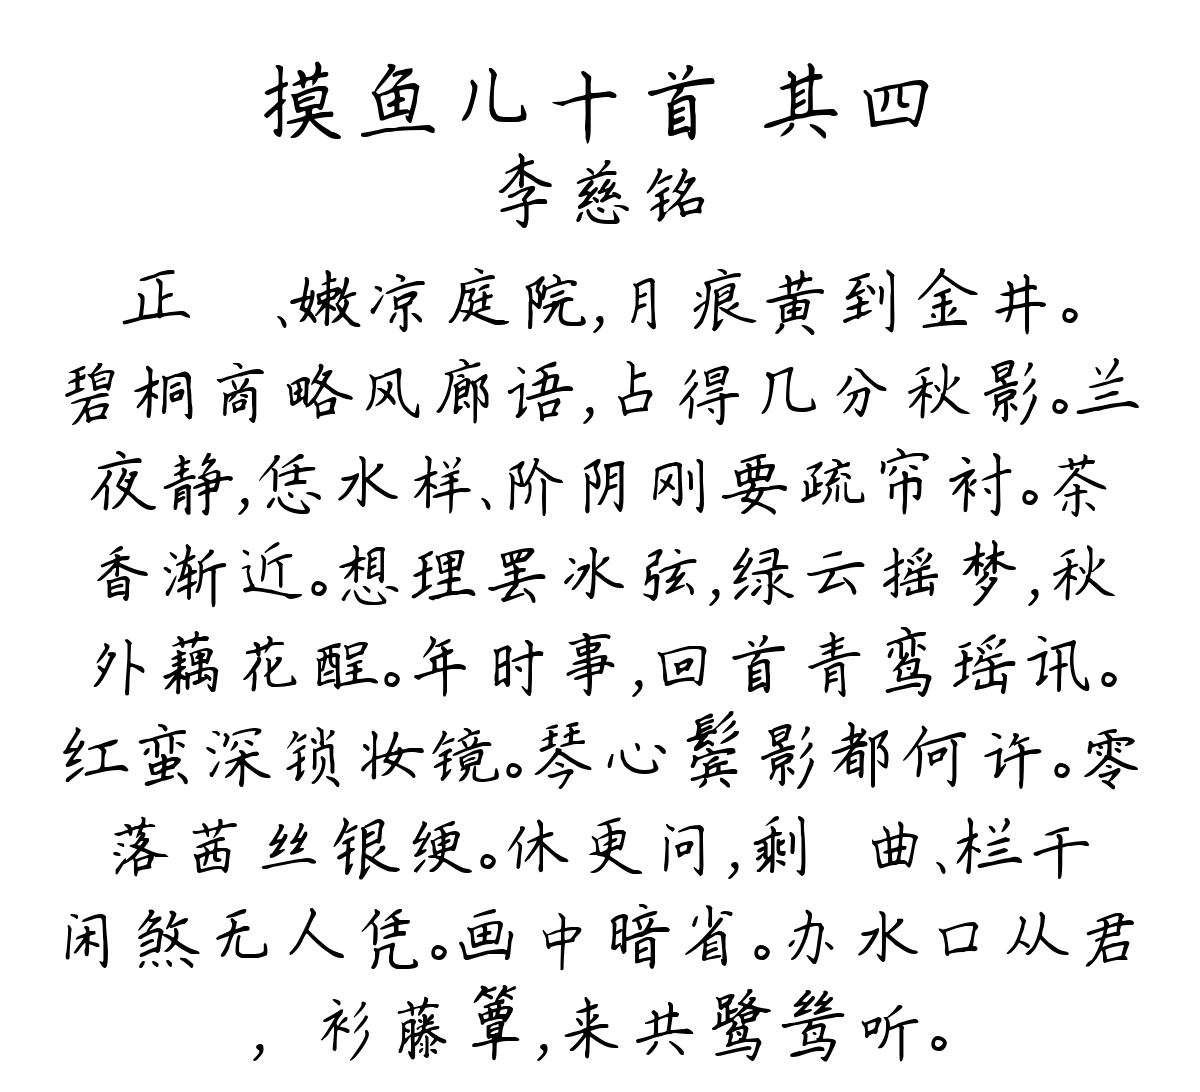 摸鱼儿十首 其四
李慈铭
正 、嫩凉庭院,月痕黄到金井。
碧桐商略风廊语,占得几分秋影。兰
夜静,恁水样、阶阴刚要疏帘衬。茶
香渐近。想理罢冰弦,绿云摇梦,秋
外藕花酲。年时事,回首青鸾瑶讯。
红蛮深锁妆镜。琴心鬓影都何许。零
落茜丝银绠。休更问,剩 曲、栏干
闲煞无人凭。画中暗省。办水口从君
, 衫藤簟,来共鹭鸶听。